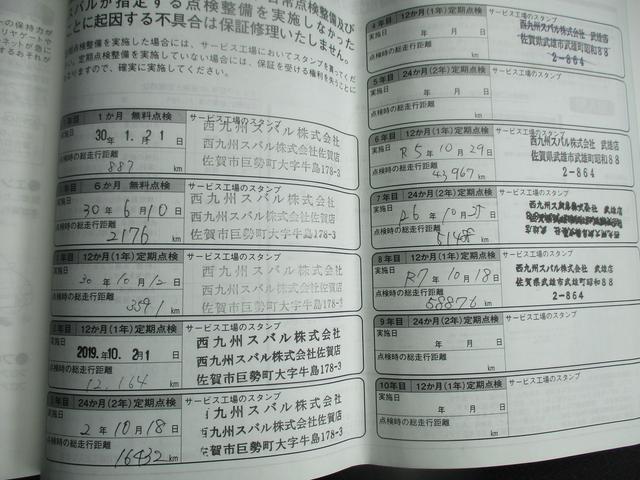 スバルが指定する点検整備を実施しなかった
ことに起因する不具合は保証修理いたしません。
点検整備を実施した場合には、サービス工場においてスタンプを
定期点検整備を実施していない場合には、保証を受ける権利を失うことに
なりますので、確実に実施してください。
1か月 無料点検
サービス工場のスタンプ
実施日
30年 1月 21日
点検時の総走行距離
887 km
西九州スバル株式会社
西九州スバル株式会社佐賀店
佐賀市巨勢町大字牛島178-3
6か月 無料点検
サービス工場のスタンプ
実施日
30年 6月 10日
点検時の総走行距離
2176 km
西九州スバル株式会社
西九州スバル株式会社佐賀店
佐賀市巨勢町大字牛島178-3
1年目 12か月(1年)定期点検
サービス工場のスタンプ
実施日
30年 10月 12日
点検時の総走行距離
3591 km
西九州スバル株式会社
西九州スバル株式会社佐賀店
佐賀市巨勢町大字牛島178-3
2年目 12か月(1年)定期点検
サービス工場のスタンプ
実施日
2019.年10. 21日
点検時の総走行距離
12,164 km
西九州スバル株式会社
西九州スバル株式会社佐賀店
佐賀市巨勢町大字牛島178-3
3年目 24か月(2年)定期点検
サービス工場のスタンプ
実施日
2年 10月 18日
点検時の総走行距離
16432 km
西九州スバル株式会社
西九州スバル株式会社佐賀店
佐賀市巨勢町大字牛島178-3
4年目 12か月(1年)定期点検
サービス工場のスタンプ
実施日
年 月 日
点検時の総走行距離
km
西九州スバル株式会社 武雄店
佐賀県武雄市武雄町昭和88
2-864
5年目 24か月(2年)定期点検
サービス工場のスタンプ
実施日
年 月 日
点検時の総走行距離
km
6年目 12か月(1年)定期点検
サービス工場のスタンプ
実施日
R5年 10月 29日
点検時の総走行距離
43967 km
西九州スバル株式会社 武雄店
佐賀県武雄市武雄町昭和88
2-864
7年目 24か月(2年)定期点検
サービス工場のスタンプ
実施日
年 10月 25日
点検時の総走行距離
km
西九州スバル株式会社 武雄店
8年目 12か月(1年)定期点検
サービス工場のスタンプ
実施日
R7年 10月 18日
点検時の総走行距離
58876 km
西九州スバル株式会社 武雄店
佐賀県武雄市武雄町昭和88
2-864
9年目 24か月(2年)定期点検
サービス工場のスタンプ
実施日
年 月 日
点検時の総走行距離
km
10年目 12か月(1年)定期点検
サービス工場のスタンプ
実施日
年 月 日
点検時の総走行距離
km